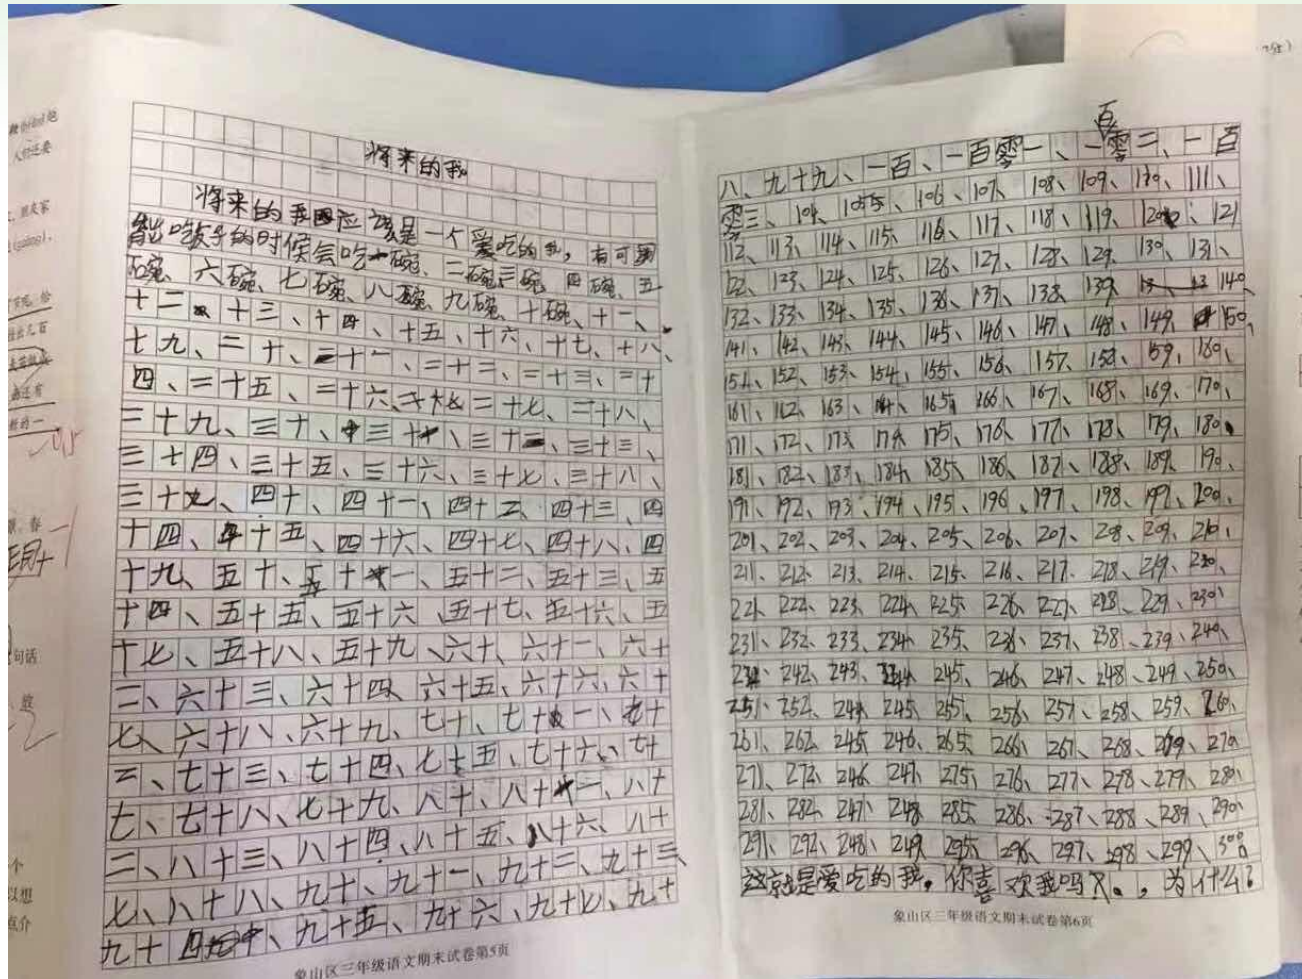 将来的我
将来的我应该是一个爱吃的我，有可
能吃饭手的时候会吃一碗、二碗、三碗、四碗、五
碗、六碗、七碗、八碗、九碗、十碗、十一、
十二、十三、十四、十五、十六、十七、十八、
十九、二十、二十一、二十二、二十三、二十
四、二十五、二十六、二十七、二十八、
二十九、三十、三十、三十二、三十三、
三十四、三十五、三十六、三十七、三十八、
三十九、四十、四十一、四十二、四十三、四
十四、四十五、四十六、四十七、四十八、四
十九、五十、五十一、五十二、五十三、五
十四、五十五、五十六、五十七、五十六、五
十七、五十八、五十九、六十、六十一、六十
二、六十三、六十四、六十五、六十六、六十
七、六十八、六十九、七十、七十一、七十
二、七十三、七十四、七十五、七十六、七十
七、七十八、七十九、八十、八十一、八十
二、八十三、八十四、八十五、八十六、八十
七、八十八、九十、九十一、九十二、九十三、
九十四、九十五、九十六、九十七、九十
象山区三年级语文期末试卷第5页
八、九十九、一百、一百零一、一百零二、一百
零三、104、105、106、107、108、109、110、111、
112、113、114、115、116、117、118、119、120、121
122、123、124、125、126、127、128、129、130、131、
132、133、134、135、136、137、138、139、140、
141、142、143、144、145、146、147、148、149、150、
151、152、153、154、155、156、157、158、159、160、
161、162、163、164、165、166、167、168、169、170、
171、172、173、174、175、176、177、178、179、180、
181、182、183、184、185、186、187、188、189、190、
191、192、193、194、195、196、197、198、199、200、
201、202、203、204、205、206、207、208、209、210、
211、212、213、214、215、216、217、218、219、220、
221、222、223、224、225、226、227、228、229、230、
231、232、233、234、235、236、237、238、239、240、
242、243、244、245、246、247、248、249、250、
251、252、244、245、255、256、257、258、259、260、
261、262、245、246、265、266、267、268、269、270
271、272、246、247、275、276、277、278、279、280、
281、282、247、248、285、286、287、288、289、290、
291、292、248、249、295、296、297、298、299、300
这就是爱吃的我。你喜欢我吗？，为什么？
象山区三年级语文期末试卷第6页